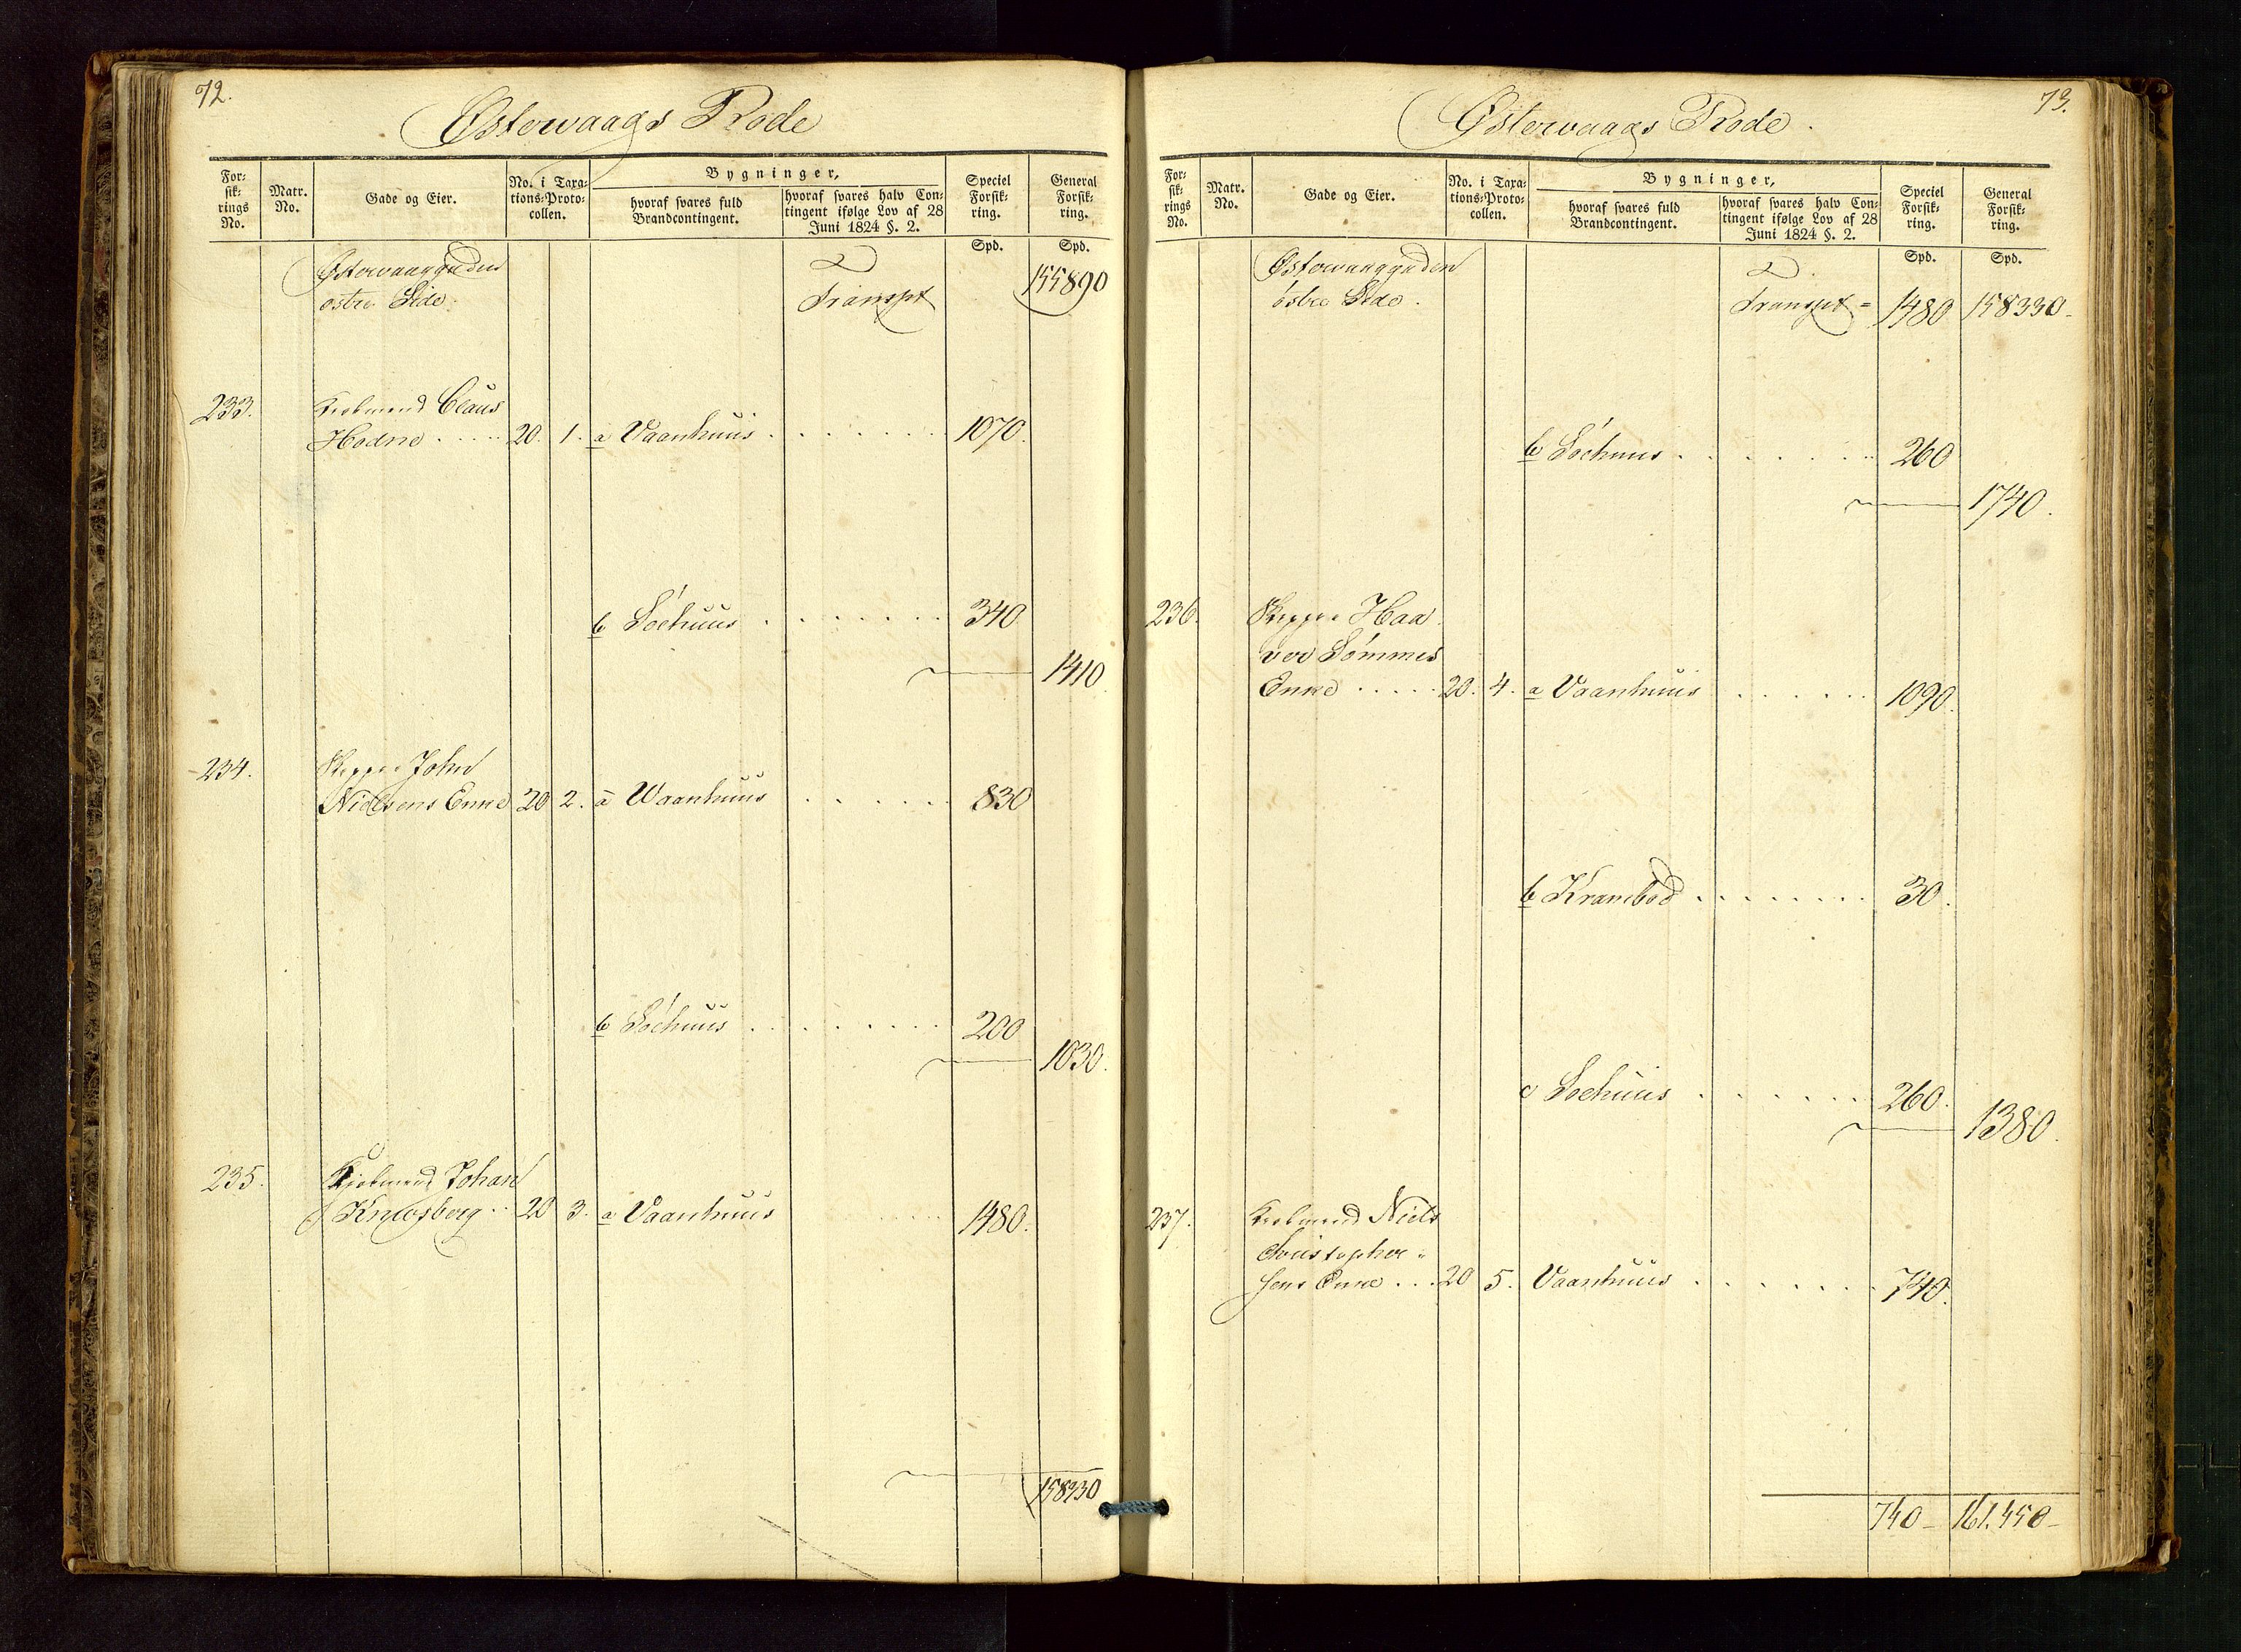 72.
Østervaags Rode
For:
sik:
rings
No.
Matr.
No.
Gade og Eier.
No. i Taxa:
tions:Proto:
collen.
Bygninger,
hvoraf svares fuld
Brandcontingent.
hvoraf svares halv Con:
tingent ifølge Lov af 28
Juni 1824 §. 2.
Speciel
Forsik:
ring.
General
Forsik:
ring.
Spd. Spd.
Østervaaggaden
østre Side.
Transpt 155890
233. Claus
Hodne ..... 20. 1. a Vaanhuus ....... 1070.
b Söehuus ....... 340
1410
234. John
Nielsens Enke 20 2. a Waanhuus ...... 830
b Söehuus ........ 200
1030.
235. Johan
20 3. a Vaanhuus ...... 1480.
158330
73.
Østervaags Rode.
For:
sik:
rings
No.
Matr.
No.
Gade og Eier.
No. i Taxa:
tions:Proto:
collen.
Bygninger,
hvoraf svares fuld
Brandcontingent.
hvoraf svares halv Con:
tingent ifølge Lov af 28
Juni 1824 §. 2.
Speciel
Forsik:
ring.
General
Forsik:
ring.
Spd. Spd.
Østervaaggaden
östre Side.
Transpt = 1480 158330-
b Söehuus ....... 260
1740.
236. Haa
vor Sömmes
Enke ..... 20. 4. a Vaanhuus ...... 1090.
b Krambod ........ 30.
c Soehuus ...... 260.
1380.
237. Niels
Christopher-
sens Enke ... 20 5. Vaanhuus ...... 740.
740- 161.450-